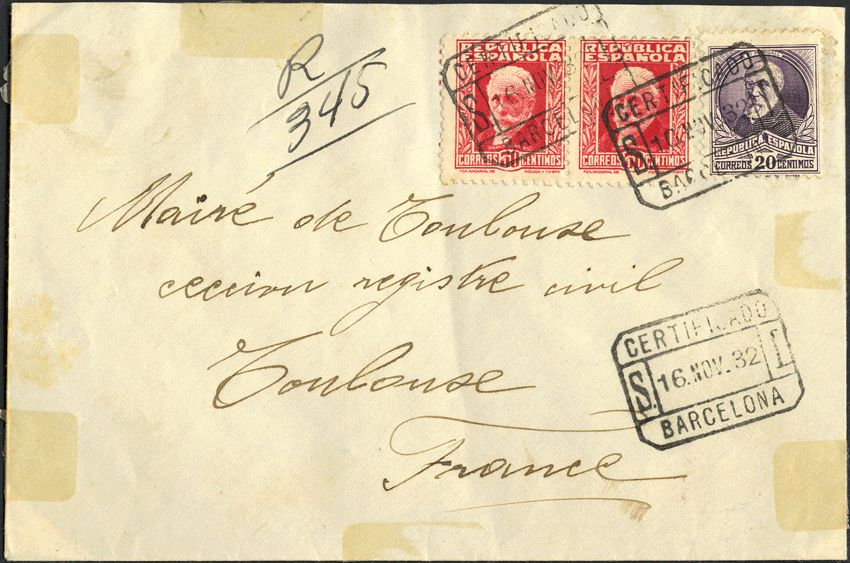 R
345
REPÚBLICA
ESPAÑOLA
50
CORREOS CENTIMOS
REPÚBLICA
ESPAÑOLA
CORREOS CENTIMOS
REPUBLICA ESPAÑOLA
CORREOS 20 CENTIMOS
CERTIFICADO
S. 16 NOV. 32
BARCEL
CERTIFICADO
S. 16 NOV. 32 L
BARCEL
Mairé de Toulouse
ceccion registre civil
Toulouse
France
CERTIFICADO
S. 16.NOV.32 L
BARCELONA